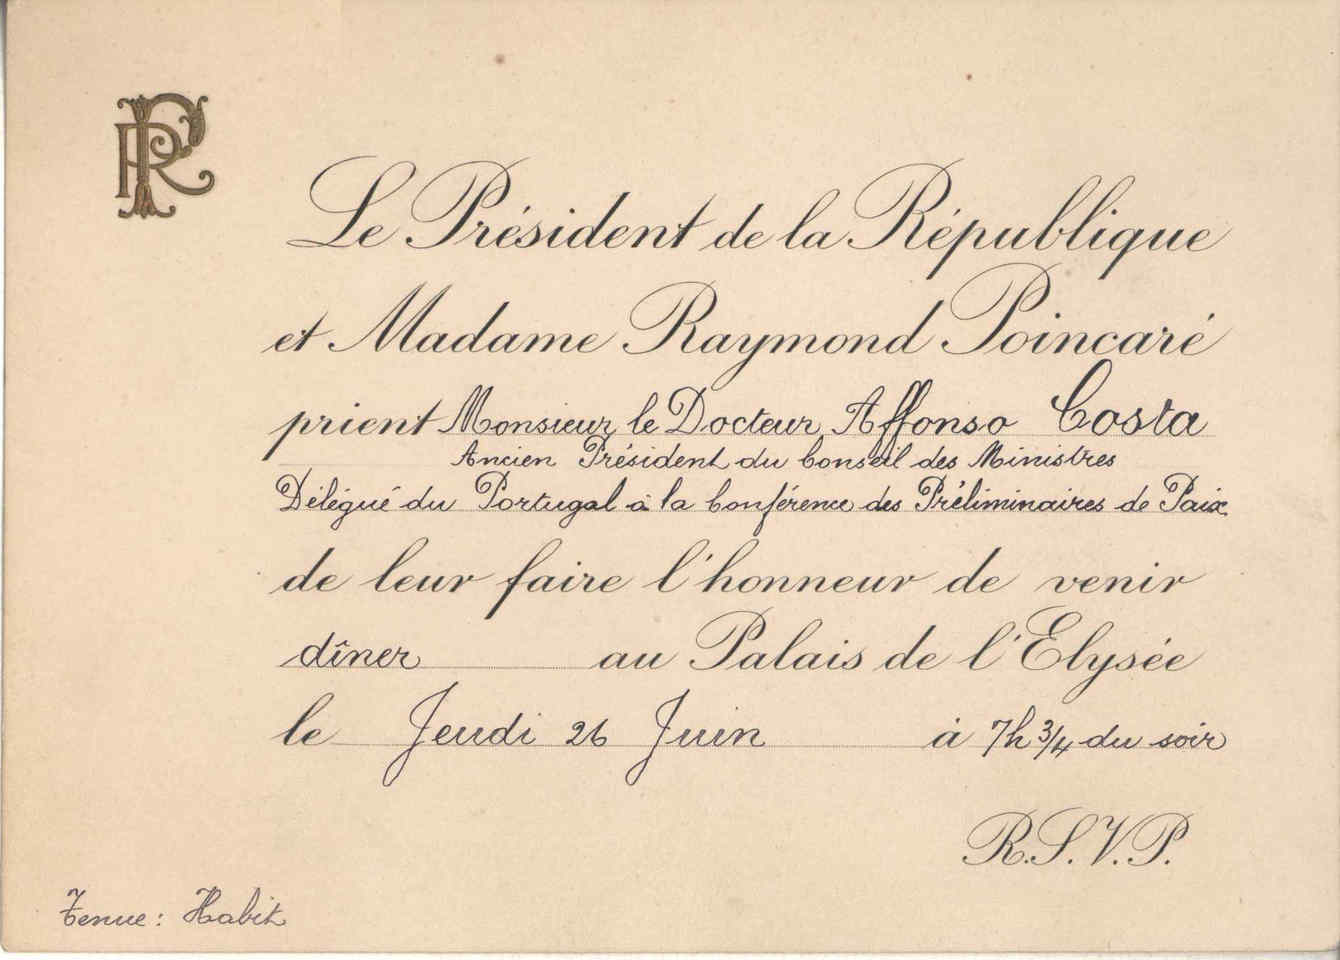 RPF
Le Président de la République
et Madame Raymond Poincaré
prient Monsieur le Docteur Affonso Costa
Ancien Président du Conseil des Ministres
Délégué du Portugal à la Conférence des Préliminaires de Paix
de leur faire l'honneur de venir
dîner au Palais de l'Elysée
le Jeudi 26 Juin à 7h 3/4 du soir
R.S.V.P.
Tenue : Habit